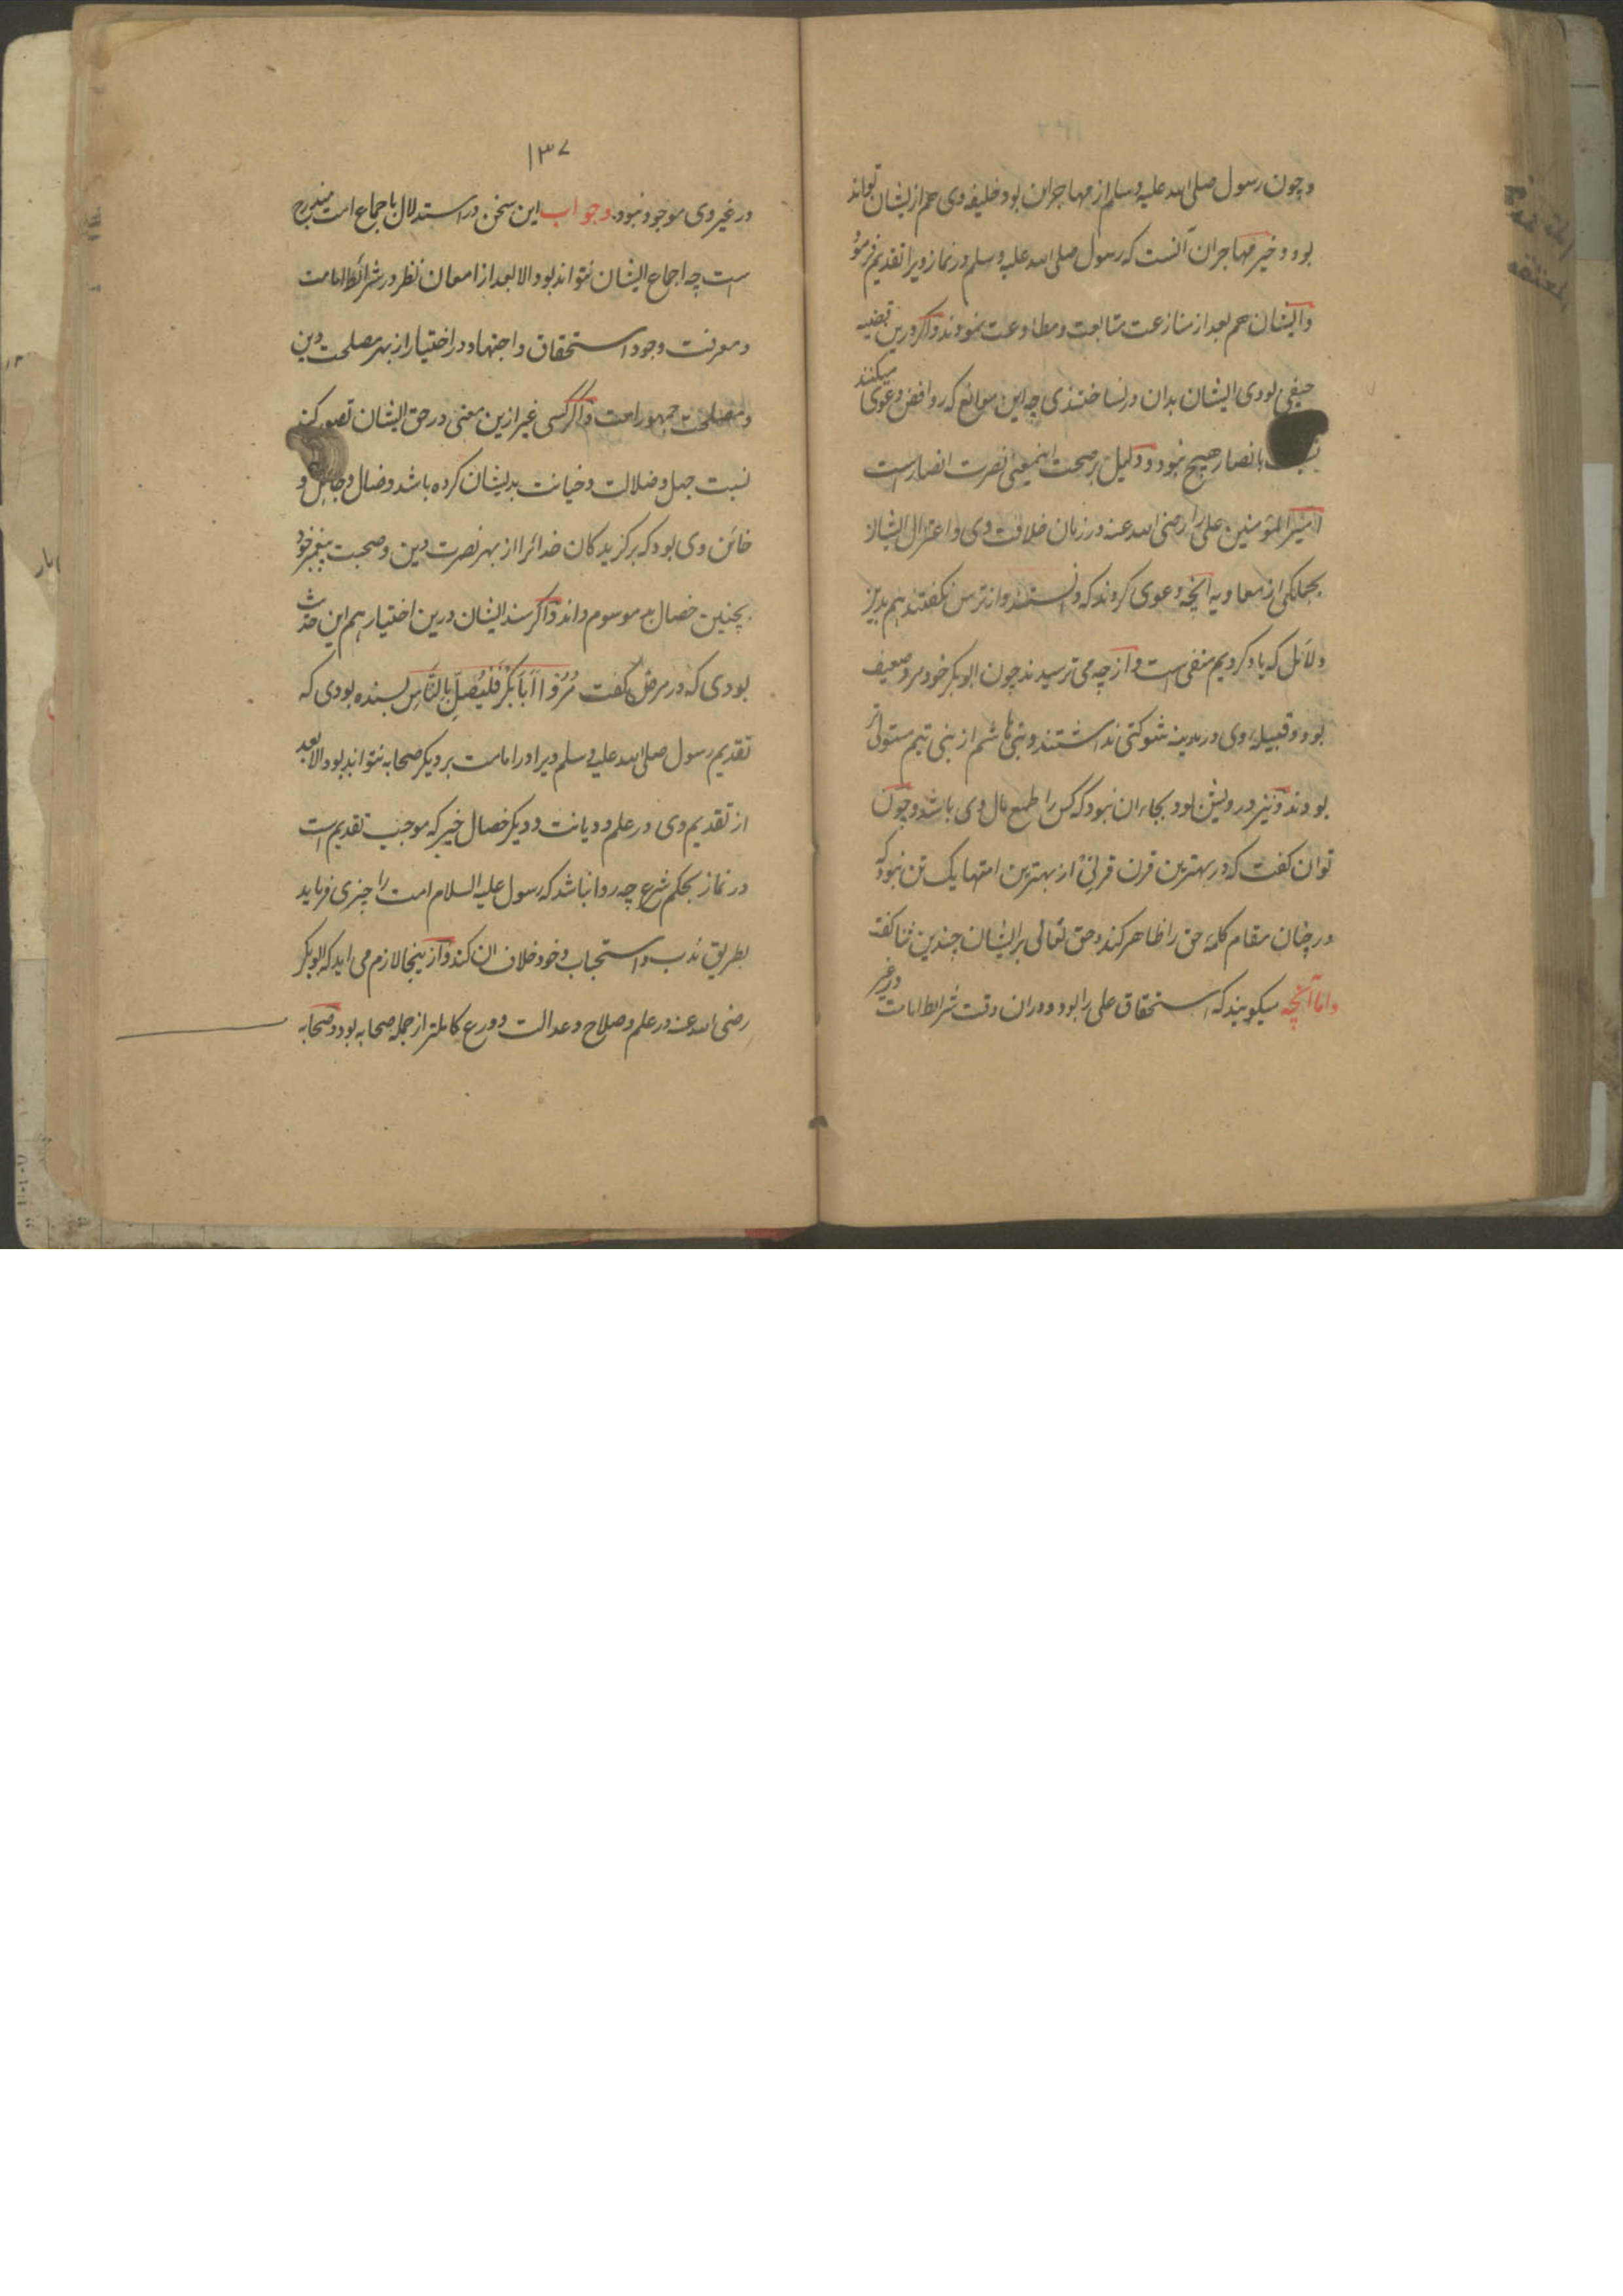 و چون رسول صلی الله علیه وسلم از مهاجران بود خلیفه وی هم از یشان تواند
بود و خیر مهاجران آنست که رسول صلی الله علیه وسلم در نماز ویرا تقدیم فرمود
و ایشان هم بعد از منازعت متابعت و مطاوعت نمودند و اگر درین قضیه
حیفی بودی ایشان بدان در نساختندی چه این موانع که روافض دعوی میکنند
بانصار هیچ نبود و دلیل بر صحت اینمعنی نصرت انصارست
امیر المؤمنین علی را رضی الله عنه در زمان خلافت وی و اعتزال ایشان
بجملکی از معاویه آنچه دعوی کردند که دانستند و از ترس نکفتند هم بدین
دلائل که یاد کردیم منفی است و از چه می ترسیدند چون ابوبکر خود مرد ضعیف
بود و قبیله وی در مدینه شوکتی نداشتند و بنی هاشم از بنی تیم مستولی تر
بودند و نیز درویش بود بجاء ان نبود که کس را طمع مال وی باشد و چون
توان کفت که در بهترین قرن قرنی از بهترین امتها یک تن نبود که
در چنان مقام کلمهٔ حق را ظاهر کند و حق تعالی بر ایشان چندین ثنا کفته
و اما آنچه میکویند که استحقاق علی را بود و دران وقت شرایط امامت در غیر
۱۳۷
در غیر وی موجود نبود و جواب این سخن در استدلال باجماع امت
است چه اجماع ایشان نتواند بود الا بعد از امعان نظر در شرائط امامت
و معرفت وجود استحقاق و اجتهاد در اختیار از بهر مصلحت دین
و مصلحت جمهور امت و اگر کسی غیر ازین معنی در حق ایشان تصور کند
نسبت جهل و ضلالت و خیانت بدیشان کرده باشد و ضال و جاهل و
خائن وی بود که برکزیدکان خدائرا از بهر نصرت دین و صحبت پیغمبر خود
بچنین خصال بد موسوم داند و اگر سند ایشان درین اختیار هم این حدیث
بودی که در مرض کفت مُرُوا اَبَا بَكْرٍ فَلْيُصَلِّ بِالنَّاسِ بسنده بودی که
تقدیم رسول صلی الله علیه وسلم ویرا در امامت بر دیکر صحابه نتواند بود الا بعد
از تقدیم وی در علم و دیانت و دیکر خصال خیر که موجب تقدیم است
در نماز بحکم شرع چه روا نباشد که رسول علیه السلام امت را چیزی فرماید
بطریق ندب و استحباب و خود خلاف ان کند و از ینجا لازم می اید که ابوبکر
رضی الله عنه در علم و صلاح و عدالت و ورع کاملتر از جمله صحابه بود و صحابه